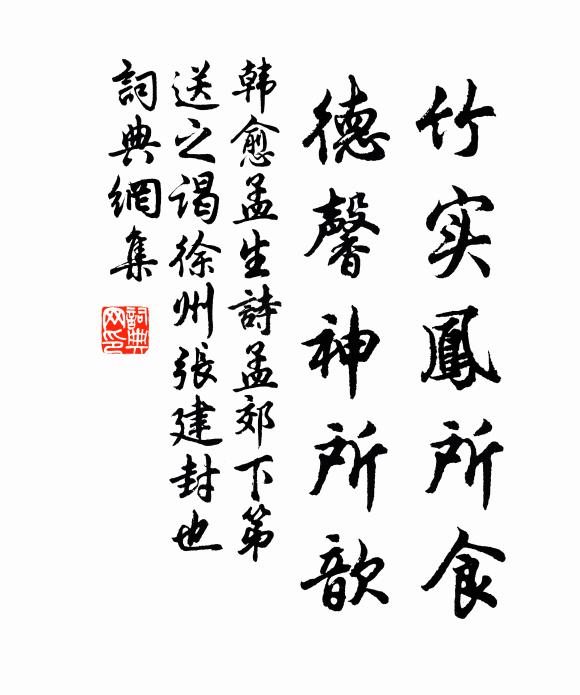 竹实鳳所食
德馨神所歆
韩愈孟生詩孟郊下第
送之谒徐州張建封也
詞典網集
詞典网印